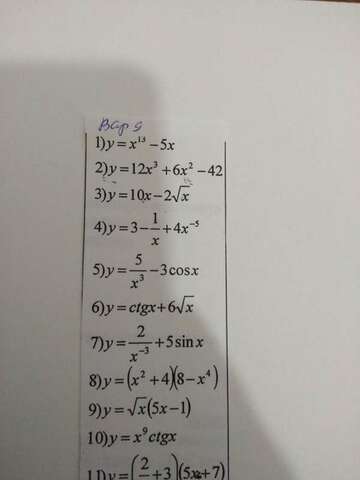 Вар 9
1)y=x¹³−5x
2)y=12x³+6x²−42
3)y=10x−2√x
4)y=3−1/x+4x⁻⁵
5)y=5/x³−3cosx
6)y=ctgx+6√x
7)y=2/x⁻³+5sinx
8)y=(x²+4)(8−x⁴)
9)y=√x(5x−1)
10)y=x⁹ctgx
11)y=(2/ +3)(5x+7)